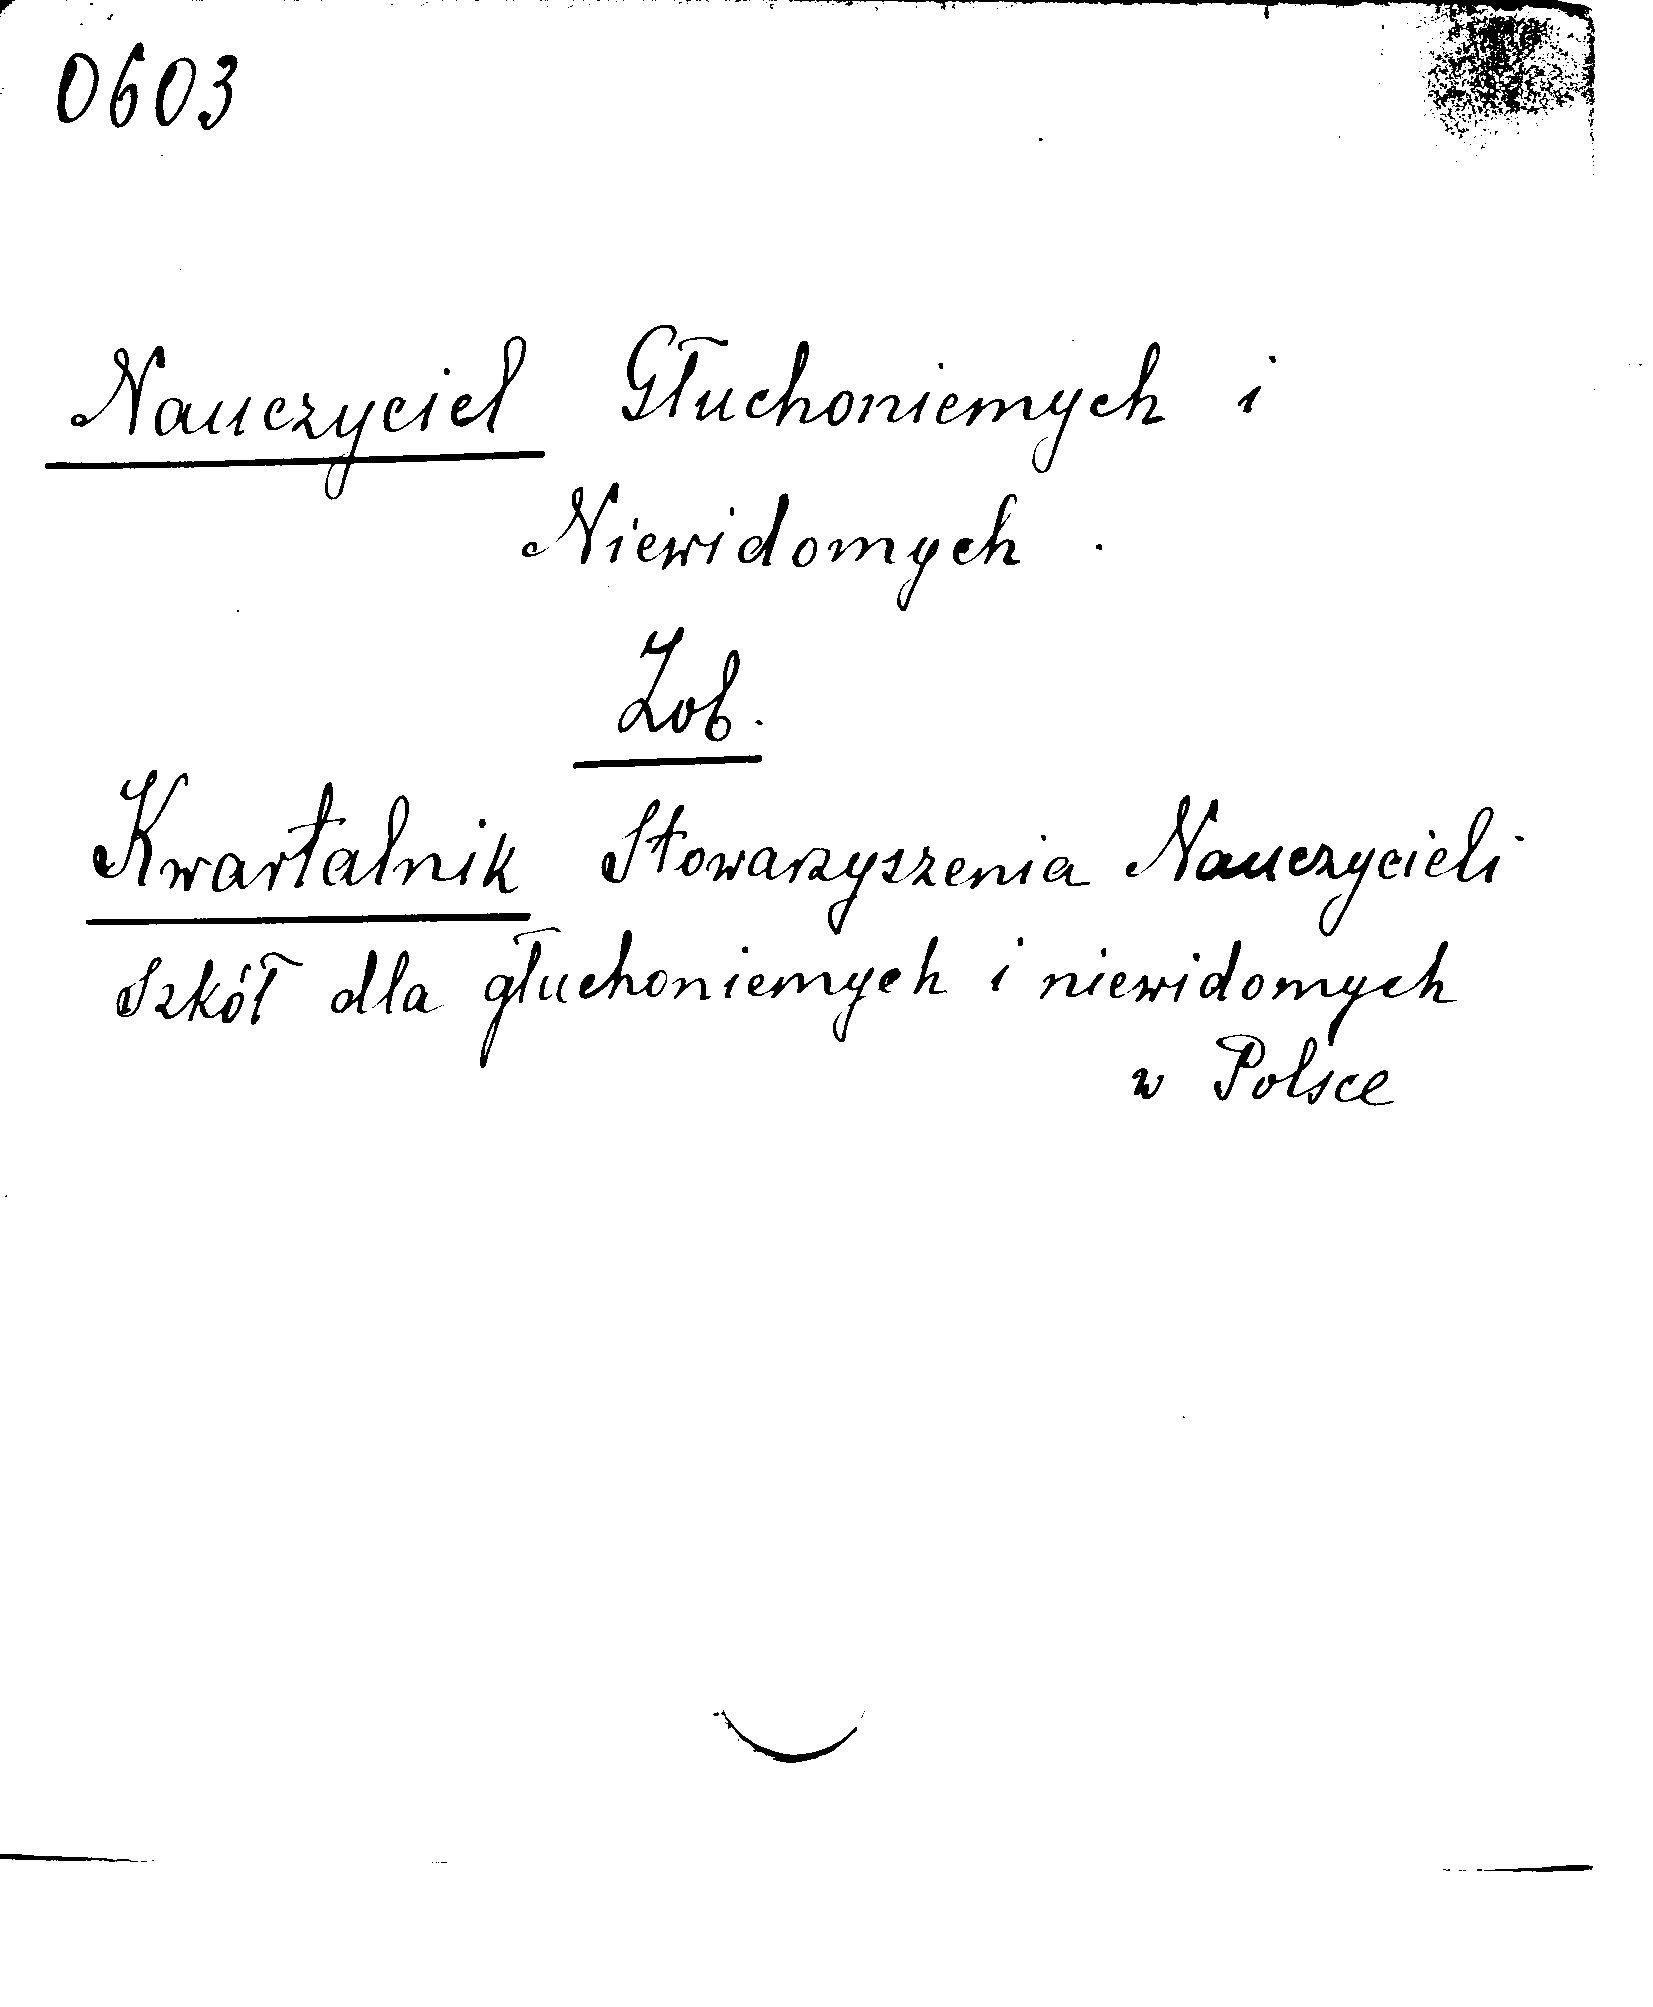 0603
Nauczyciel Głuchoniemych i
Niewidomych.
Zob.
Kwartalnik Stowarzyszenia Nauczycieli
szkół dla głuchoniemych i niewidomych
w Polsce